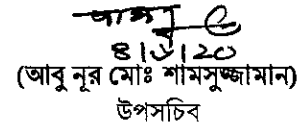 ৪|৬|২০
(আবু নূর মোঃ শামসুজ্জামান)
উপসচিব